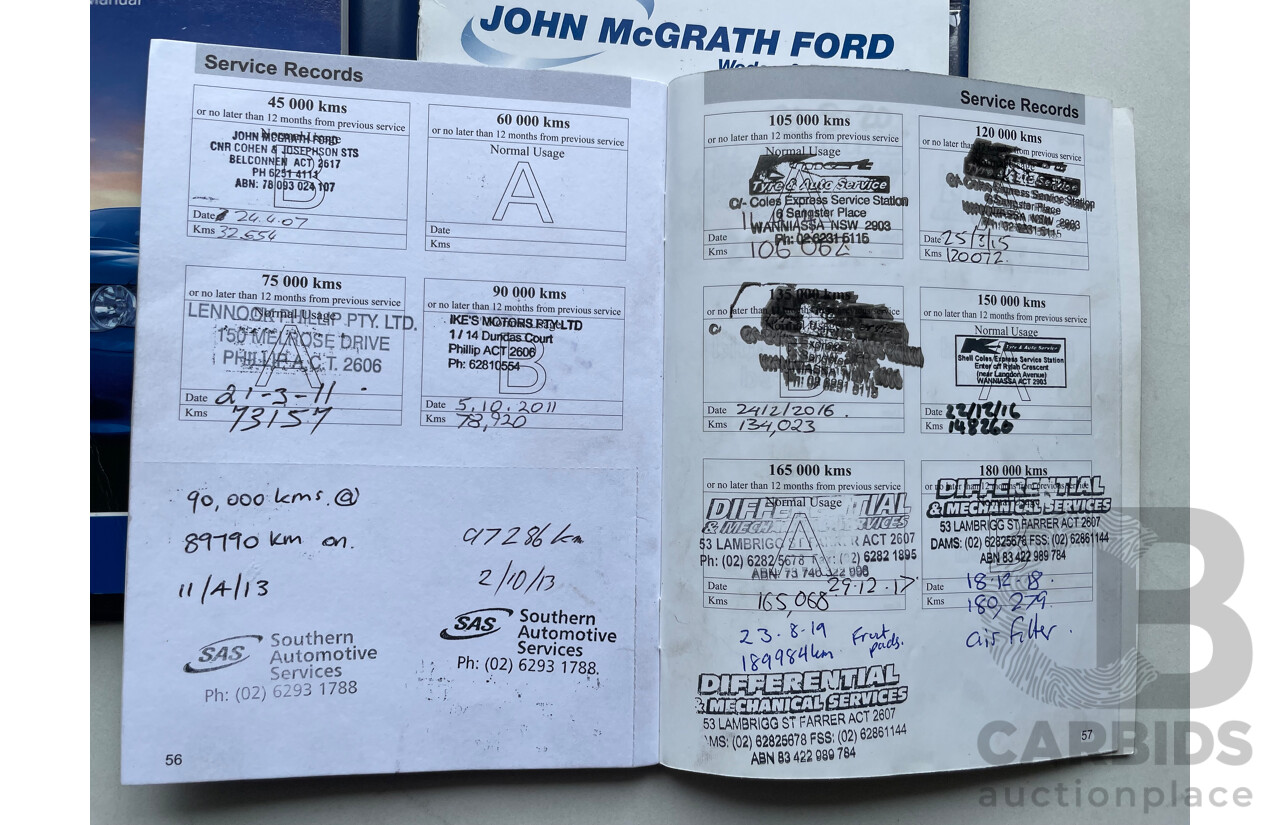 Manual
JOHN McGRATH FORD
Service Records
45 000 kms
or no later than 12 months from previous service
Normal Usage
JOHN McGRATH FORD
CNR COHEN & JOSEPHSON STS
BELCONNEN ACT 2617
PH 6251 4111
ABN: 78 093 024 107
B
Date 24.4.07
Kms 32,554
60 000 kms
or no later than 12 months from previous service
Normal Usage
A
Date
Kms
75 000 kms
or no later than 12 months from previous service
Normal Usage
LENNOCK PHILLIP PTY. LTD.
150 MELROSE DRIVE
PHILLIP A.C.T. 2606
A
Date 21-3-11
Kms 73157
90 000 kms
or no later than 12 months from previous service
IKE'S MOTORS PTY LTD
1 / 14 Dundas Court
Phillip ACT 2606
Ph: 62810554
B
Date 5.10.2011
Kms 78,920
90,000 kms @
89790 km on.
11/4/13
SAS Southern
Automotive
Services
Ph: (02) 6293 1788
97286 km
2/10/13
SAS Southern
Automotive
Services
Ph: (02) 6293 1788.
56
Service Records
105 000 kms
or no later than 12 months from previous service
Normal Usage
Tyre & Auto Service
C/- Coles Express Service Station
6 Sangster Place
WANNIASSA NSW 2903
Ph: 02 6231 5115
A
Date
Kms 106 062
120 000 kms
or no later than 12 months from previous service
C/- Coles Express Service Station
6 Sangster Place
WANNIASSA NSW 2903
Date 25/3/15
Kms 120072.
135 000 kms
or no later than 12 months from previous service
Date 24/2/2016.
Kms 134,023
150 000 kms
or no later than 12 months from previous service
Normal Usage
Tyre & Auto Service
Shell Coles Express Service Station
Enter off Rylah Crescent
(near Langdon Avenue)
WANNIASSA ACT 2903
A
Date 22/12/16
Kms 148260
165 000 kms
or no later than 12 months from previous service
Normal Usage
DIFFERENTIAL
& MECHANICAL SERVICES
53 LAMBRIGG ST FARRER ACT 2607
Ph: (02) 6282 5678 (02) 6282 1895
A
Date 29.12.17
Kms 165,068
180 000 kms
or no later than 12 months from previous service
DIFFERENTIAL
& MECHANICAL SERVICES
53 LAMBRIGG ST FARRER ACT 2607
DAMS: (02) 62825678 FSS: (02) 62861144
ABN 83 422 989 784
Date 18.12.18.
Kms 180,279.
air filter.
23.8.19 Front
189984km pads.
DIFFERENTIAL
& MECHANICAL SERVICES
53 LAMBRIGG ST FARRER ACT 2607
MS: (02) 62825678 FSS: (02) 62861144
ABN 83 422 989 784
57
CARBIDS
auctionplace